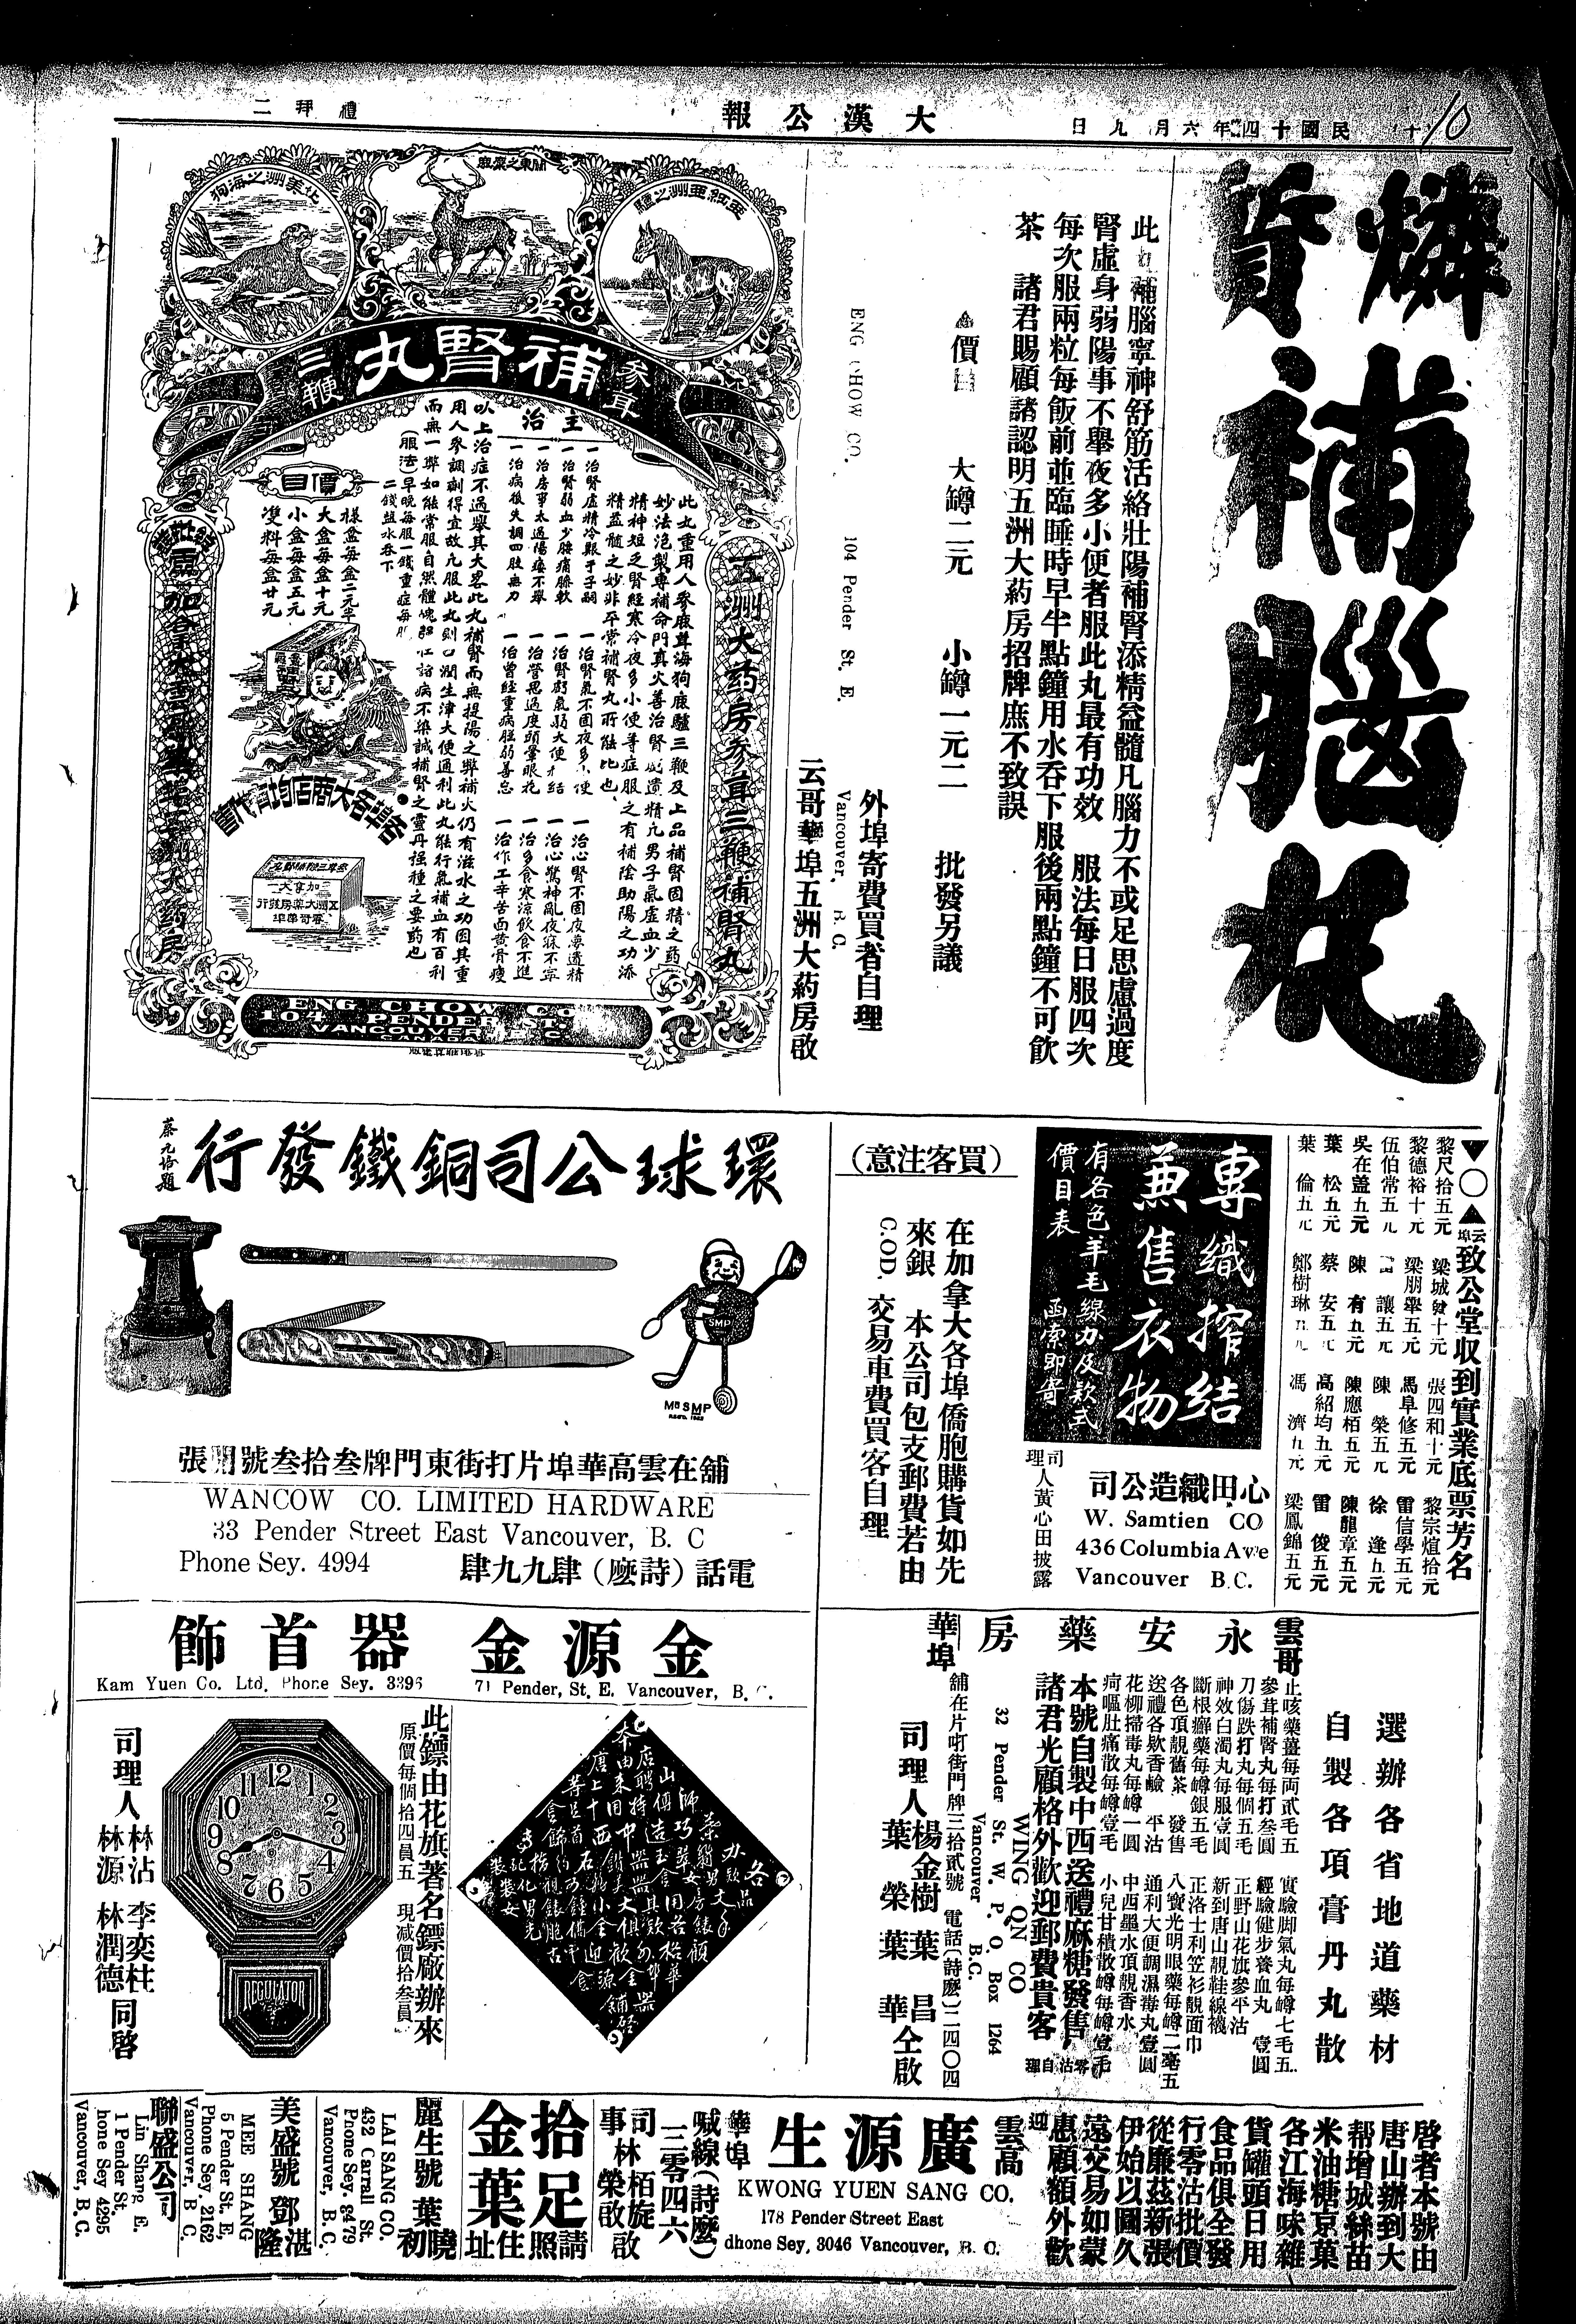 民國十四年六月九日
大漢公報
禮拜二
燐質補腦丸
此補腦寧神舒筋活絡壯陽補腎添精益髓凡腦力不或足思慮過度
腎虛身弱陽事不舉夜多小便者服此丸最有功效 服法每日服四次
每次服兩粒每飯前並臨睡時早半點鐘用水吞下服後兩點鐘不可飲
茶 諸君賜顧諸認明五洲大葯房招牌庶不致誤
大罇二元 小罇一元二 批發另議
外埠寄費買者自理
ENG CHOW CO. 104 Pender St. E. Vancouver, B.C.
云哥華埠五洲大葯房啟
北美洲之海狗
關東之鹿
亞細亞洲之驢
參茸
補腎丸
三鞭
五洲大葯房參茸三鞭補腎丸
此丸重用人參鹿茸海狗鹿驢三鞭及上品補腎固精之葯
妙法泡製專補命門真火善治腎虧遺精凡男子氣虛血少
精神短乏腎經寒冷夜多小便等症服之有補陰助陽之功添
精益髓之妙非平常補腎丸所能比也
主治
一治腎虛精冷艱于子嗣
一治腎氣不固夜多小便
一治心腎不固夜夢遺精
一治腎弱血少腰痛膝軟
一治腎虧氣弱大便秘結
一治心驚神亂夜寐不寧
一治房事太過陽痿不舉
一治營思過度頭暈眼花
一治多食寒涼飲食不進
一治病後失調四肢無力
一治曾經重病脏弱善忘
一治作工辛苦面黃骨瘦
以上治症不過舉其大畧此丸補腎而無提陽之弊補火仍有滋水之功因其重
用人參調劑得宜故凡服此丸則口潤生津大便通利此丸能行氣補血有百利
而無一弊如能常服自然體魄強壯諸病不染誠補腎之靈丹强種之要葯也
(服法)早晚每服一錢重症每服
二錢盬水吞下
價目
樣盒每盒二元半
大盒每盒十元
小盒每盒五元
雙料每盒廿元
各埠各大商店均有代售
ENG CHOW CO
104 PENDER ST.
VANCOUVER B.C.
CANADA
▼○▲云埠致公堂收到實業底票芳名
黎尺拾五元 梁城發十元 張四和十元 黎宗煊拾元
黎德裕十元 梁朋舉五元 馬阜修五元 雷信學五元
伍伯常五元 讓五元 陳 榮五元 徐 逢五元
吳在藎五元 陳 有五元 陳應栢五元 陳龍章五元
葉 松五元 蔡 安五元 高紹均五元 雷 俊五元
葉 倫五元 鄭樹琳五元 馮 濟五元 梁鳳錦五元
專織搾結
兼售衣物
有各色羊毛線力及款式
價目表 函索即寄
心田織造公司
W. Samtien CO
436 Columbia Ave
Vancouver B.C.
司理人黃心田披露
(買客注意)
在加拿大各埠僑胞購貨如先
來銀 本公司包支郵費若由
C.O.D. 交易車費買客自理
環球公司銅鐵發行
SMP
MR SMP
舖在雲高華埠片打街東門牌叁拾叁號開張
WANCOW CO. LIMITED HARDWARE
33 Pender Street East Vancouver, B. C
Phone Sey. 4994
電話（詩麽）肆九九肆
金源金器首飾
Kam Yuen Co. Ltd. Phone Sey. 3396
71 Pender, St. E. Vancouver, B. C.
此鏢由花旗著名鏢廠辦來
原價每個拾四員五 現减價拾叁員
REGULATOR
司理人
林沾 李奕柱
林源 林潤德
同啓
雲哥華埠
永安藥房
選辦各省地道藥材
自製各項膏丹丸散
止咳藥薑每両貳毛五
參茸補腎丸每打叁圓
刀傷跌打丸每個五毛
神效白濁丸每服壹圓
斷根癬藥每罇銀五毛
各色頂靚舊茶 發售
送禮各欵香鹼 平沽
花柳掃毒丸每罇一圓
疴嘔肚痛散每罇壹毛
實驗脚氣丸每罇七毛五
經驗健步養血丸 壹圓
正野山花旗參平沽
新到唐山靚鞋線襪
正洛士利笠衫靚面巾
八寶光明眼藥每罇二毫五
通利大便調濕毒丸壹圓
中西墨水頂靚香水
小兒甘積散每罇壹毛
本號自製中西送禮麻糖發售
諸君光顧格外歡迎郵費貴客自理
WING ON CO
32 Pender St. W. P. O. Box 1264
Vancouver B.C.
舖在片咑街門牌三拾貳號 電話(詩麽)二四〇四
司理人
楊金樹 葉昌
葉榮 葉華
仝啟
啓者本號由
唐山辦到大
帮增城絲苗
米油糖京菓
各江海味雜
貨罐頭日用
食品俱全發
行零沽批價
從廉茲新張
伊始以圖久
遠交易如蒙
惠顧額外歡迎
雲高華埠
廣源生
KWONG YUEN SANG CO.
178 Pender Street East
dhone Sey, 3046 Vancouver, B. C.
喊線(詩麽)
三零四六
司事 林栢旋 林榮 啟
拾足金葉
請照住址
麗生號 葉曉初
LAI SANG CO.
432 Carrall St.
Phone Sey. 8479
Vancouver, B. C.
美盛號 鄧湛隆
MEE SHANG
5 Pender St. E,
Phone Sey. 2162
Vancouver, B. C.
聯盛公司
Lin Shang E.
1 Pender St.
hone Sey 4295
Vancouver, B. C.